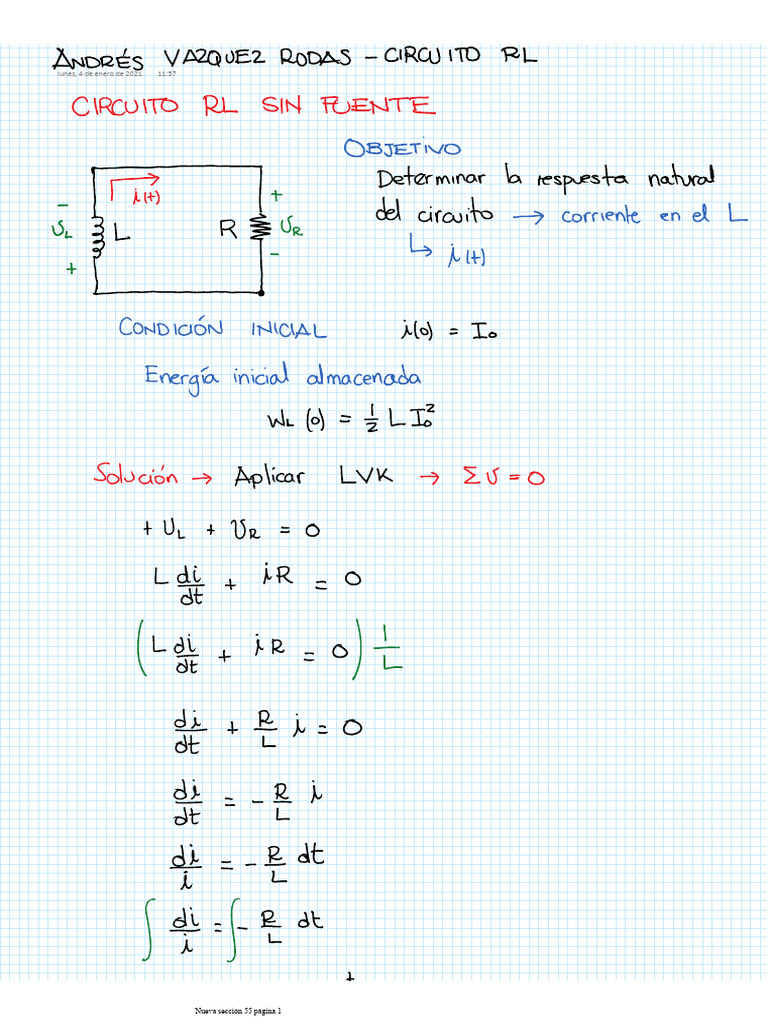 ANDRÉS VAZQUEZ RODAS - CIRCUITO RL
lunes, 4 de enero de 2021 11:57
CIRCUITO RL SIN FUENTE
OBJETIVO
Determinar la respuesta natural
del circuito → corriente en el L
↳ i(t)
i(t)
- υL + L
R + υR -
CONDICIÓN INICIAL i(0) = I₀
Energía inicial almacenada
WL (0) = 1/2 L I₀²
Solución → Aplicar LVK → Σ υ = 0
+ υL + υR = 0
L di/dt + iR = 0
(L di/dt + iR = 0) 1/L
di/dt + R/L i = 0
di/dt = - R/L i
di/i = - R/L dt
∫ di/i = ∫ - R/L dt
Nueva sección 55 página 1